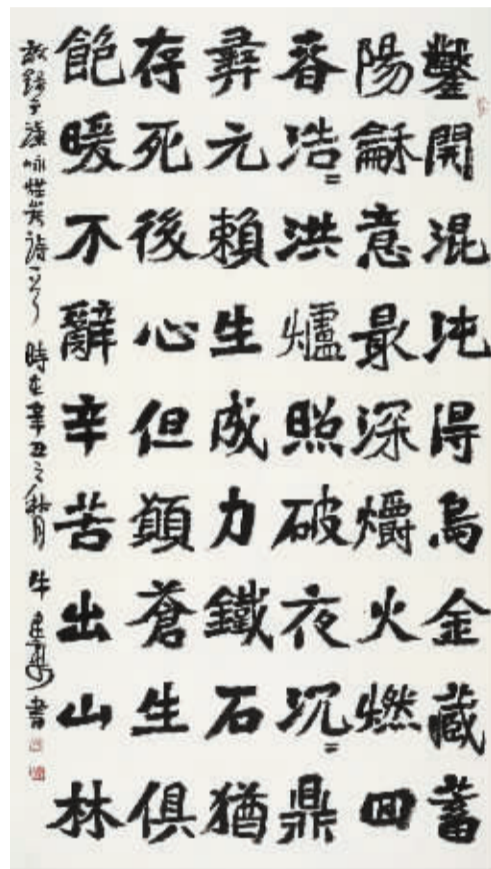 鑿開混沌得烏金藏蓄
陽龢意最深爝火燃回
春浩=洪爐照破夜沉=鼎
彝元賴生成力鐵石猶
存死後心但願蒼生俱
飽暖不辭辛苦出山林
敬錄于謙咏煤炭詩一首 時在辛丑之秋月 牛書